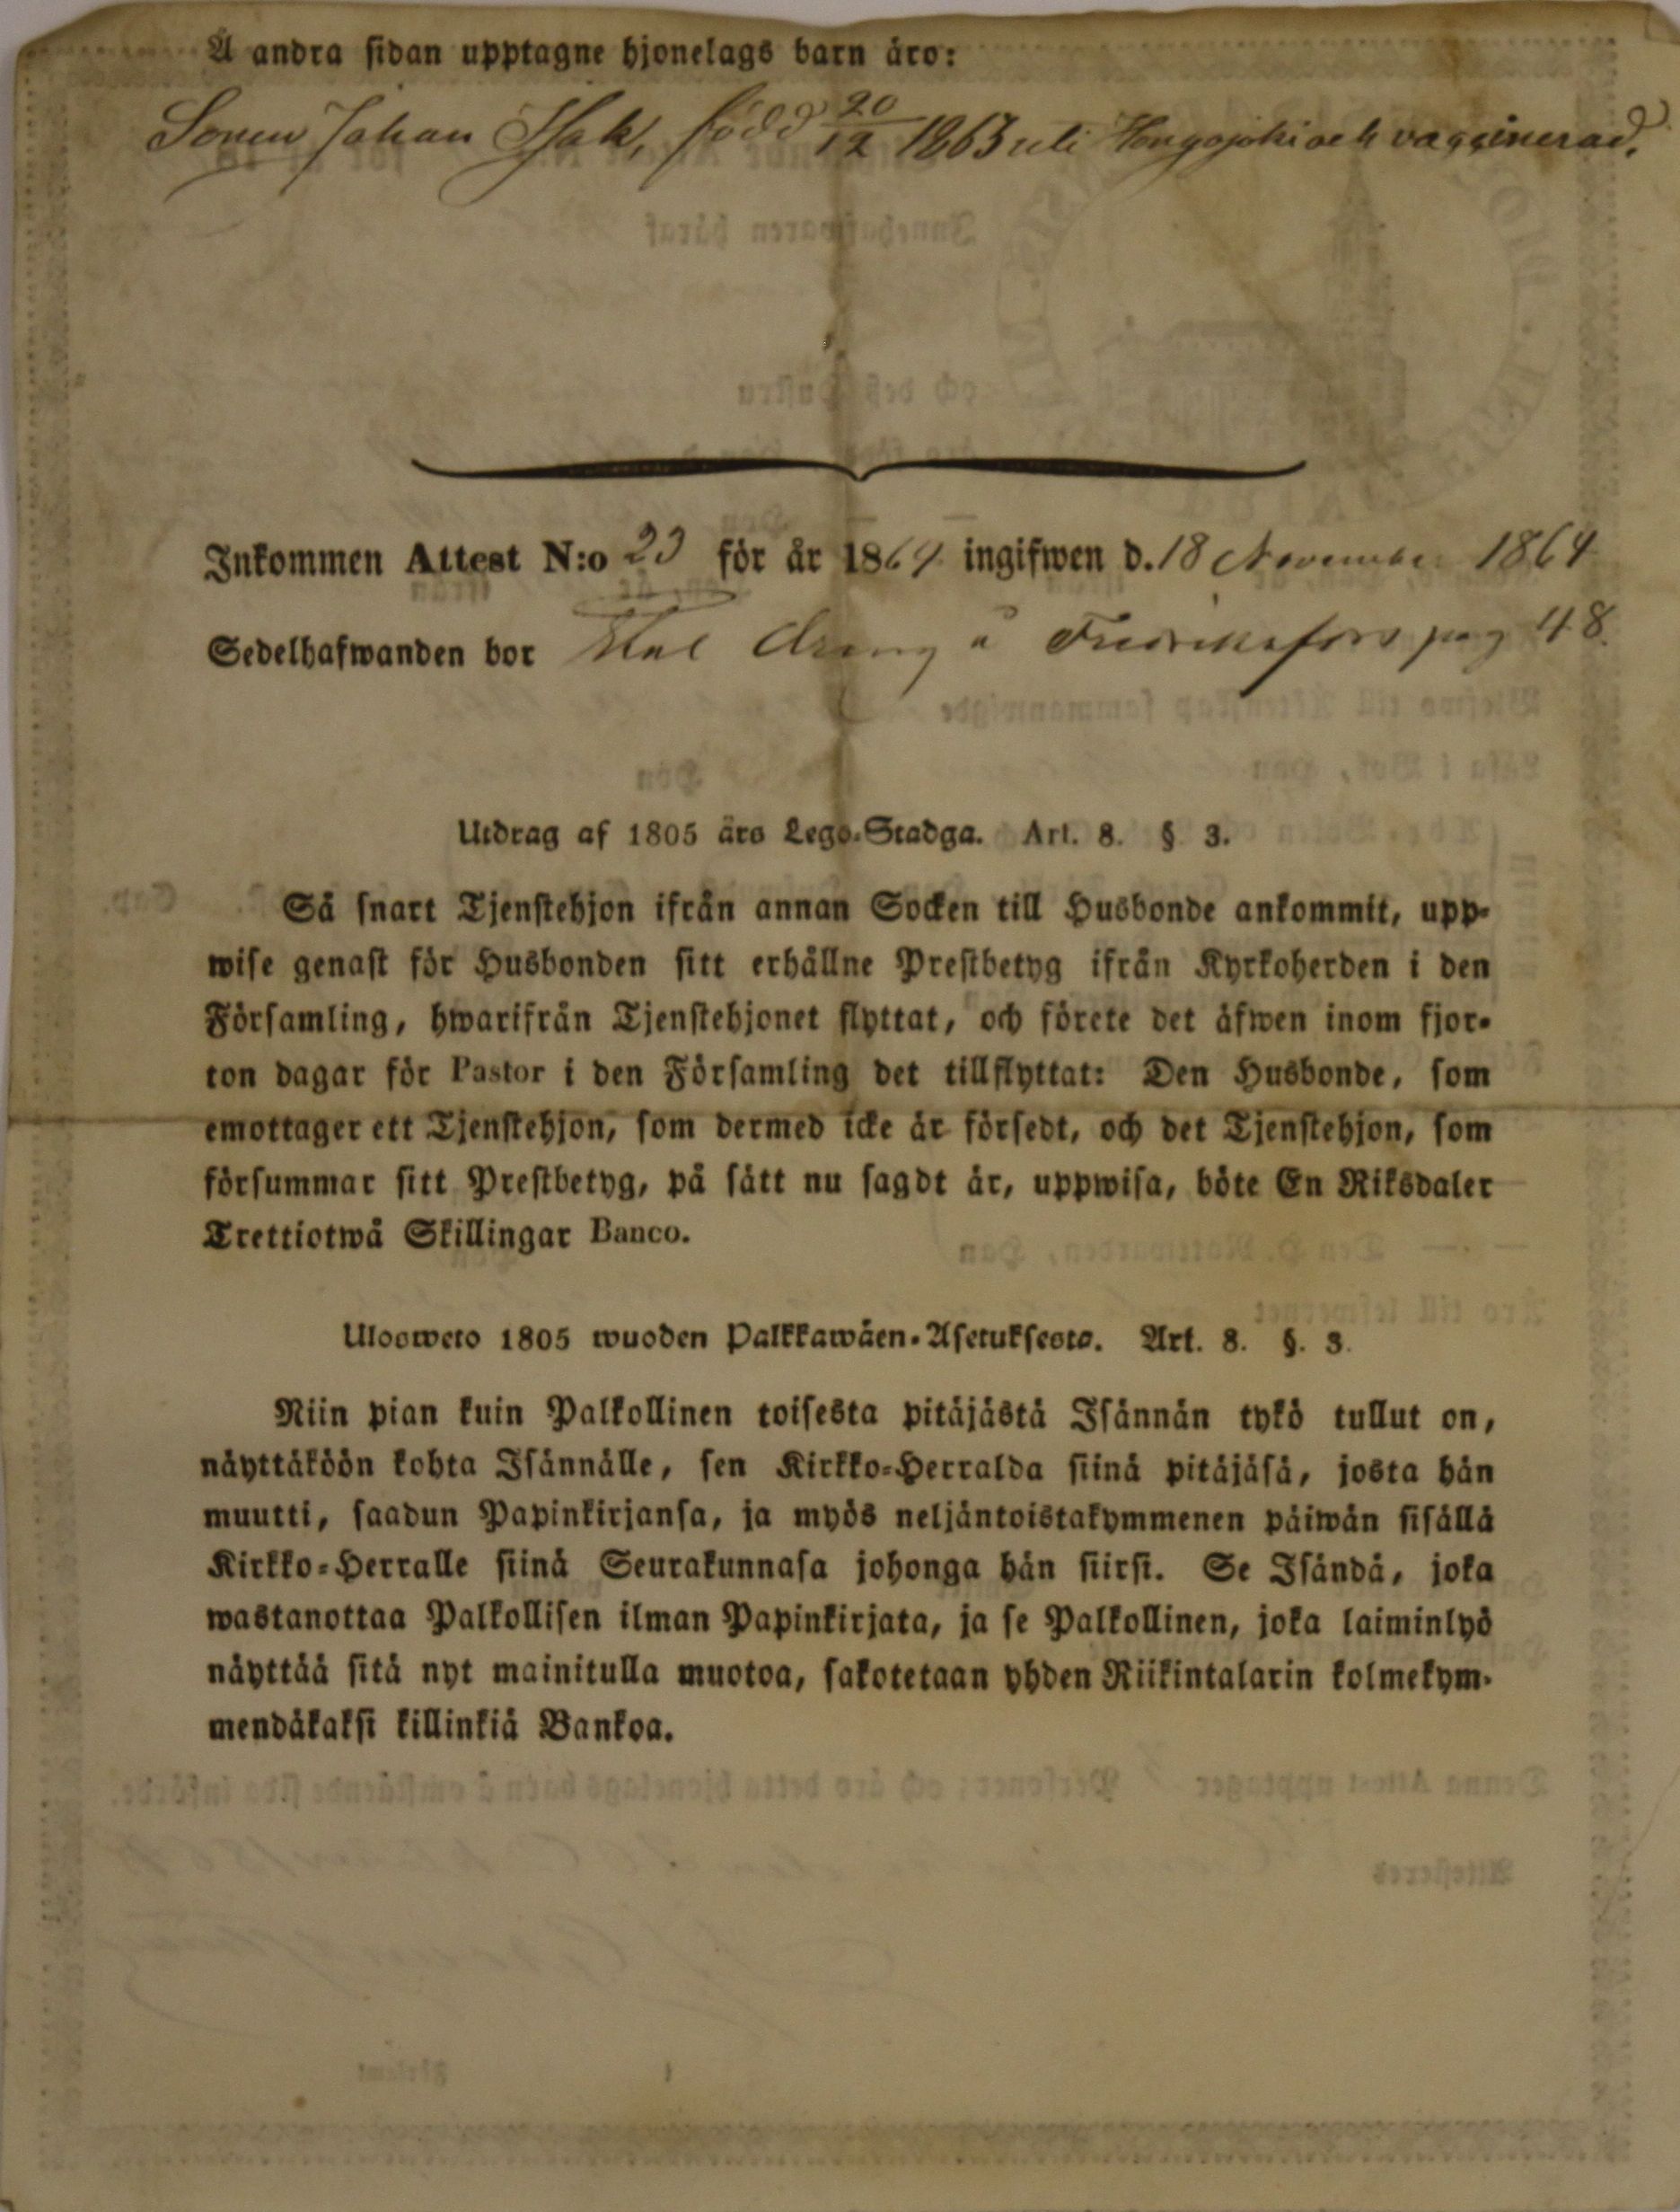 Å andra sidan upptagne hjonelags barn äro:
Sonen Johan Isak, född 20/12 1863 uti Hongojoki och vaccinerad.
Inkommen Attest N:o 23 för år 1864 ingifwen d. 18 November 1864
Sedelhafwanden bor å Fredriksfors pag 48.
Utdrag af 1805 års Lego-Stadga. Art. 8. § 3.
Så snart Tjenstehjon ifrån annan Socken till Husbonde ankommit, upp-
wise genast för Husbonden sitt erhållne Prestbetyg ifrån Kyrkoherden i den
Församling, hwarifrån Tjenstehjonet flyttat, och förete det äfwen inom fjor-
ton dagar för Pastor i den Församling det tillflyttat: Den Husbonde, som
emottager ett Tjenstehjon, som dermed icke är försedt, och det Tjenstehjon, som
försummar sitt Prestbetyg, på sätt nu sagdt är, uppwisa, böte En Riksdaler
Trettiotwå Skillingar Banco.
Uloosweto 1805 wuoden Palkkawäen-Asetuksesta. Art. 8. §. 3.
Niin pian kuin Palkollinen toisesta pitäjästä Isännän tykö tullut on,
näyttäköön kohta Isännälle, sen Kirkko-Herralda siinä pitäjäsä, josta hän
muutti, saadun Papinkirjansa, ja myös neljäntoistakymmenen päiwän sisällä
Kirkko-Herralle siinä Seurakunnasa johonga hän siirsi. Se Isändä, joka
wastanottaa Palkollisen ilman Papinkirjata, ja se Palkollinen, joka laiminlyö
näyttää sitä nyt mainitulla muotoa, sakotetaan yhden Riikintalarin kolmekym-
mendäkaksi killinkiä Bankoa.